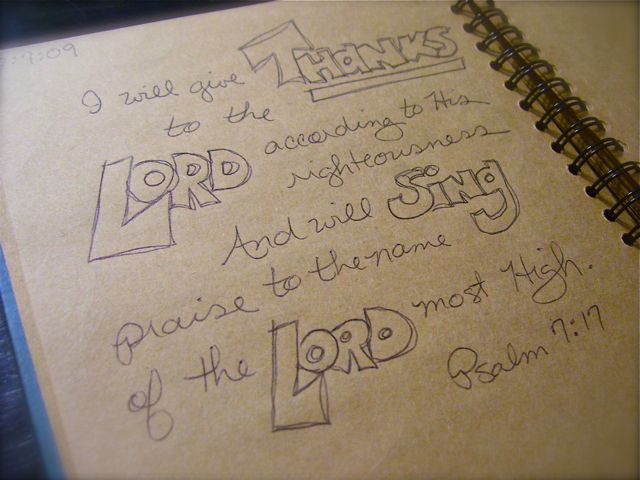 7:09
I will give THANKS
to the
LORD according to His
righteousness
And will SiNg
praise to the name
of the LORD most High.
Psalm 7:17